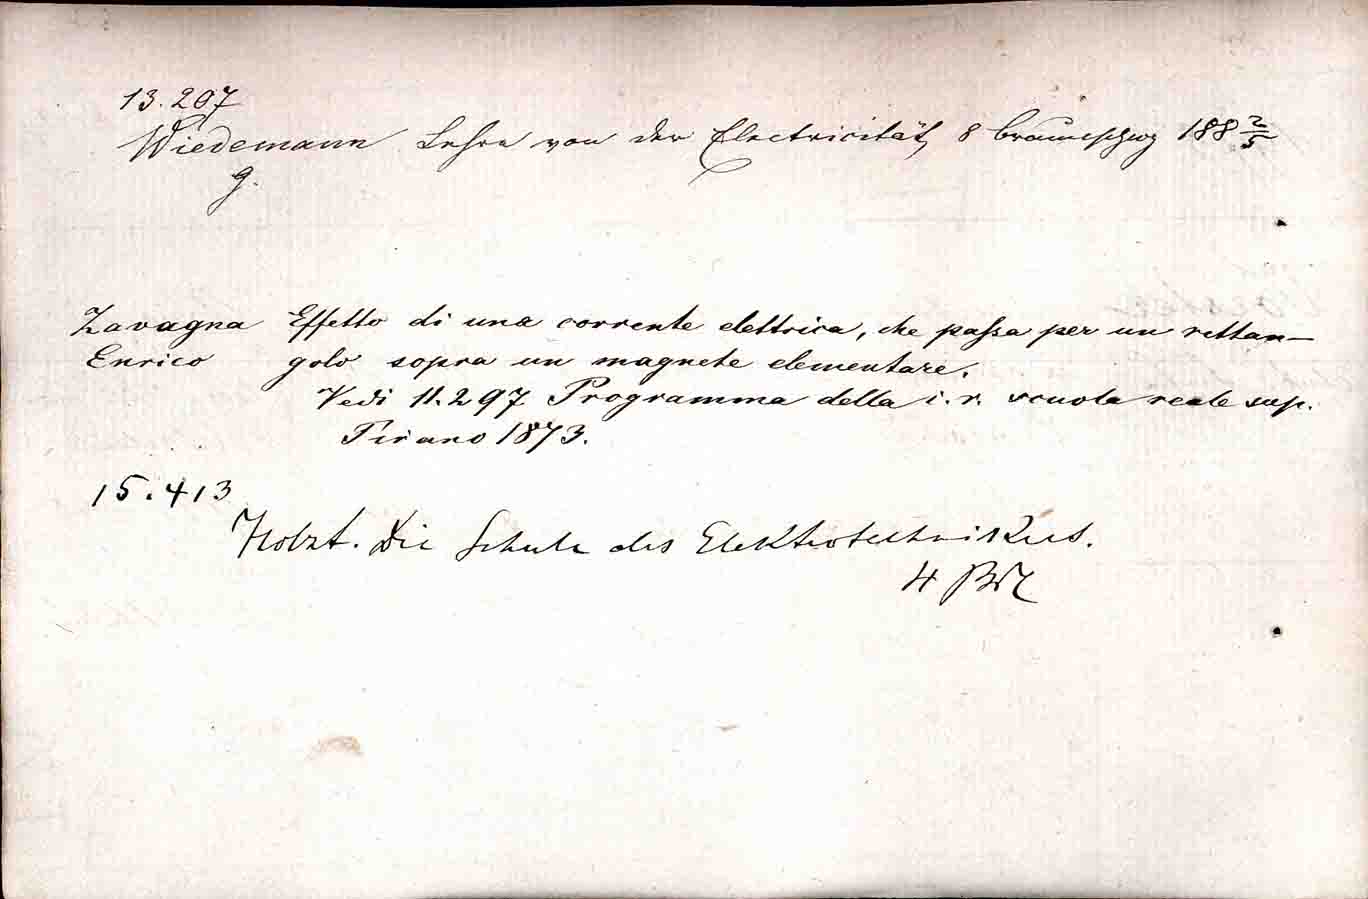 13.207
Wiedemann Lehre von der Electricität, 8 Braunschwg 188 2/5
g.
Zavagna Effetto di una corrente elettrica, che passa per un rettan-
Enrico golo sopra un magnete elementare.
Vedi 11.297 Programma della i. r. scuola reale sup.
Pirano 1873.
15.413
Holzt. Die Schule des Elektrotechnikers.
4